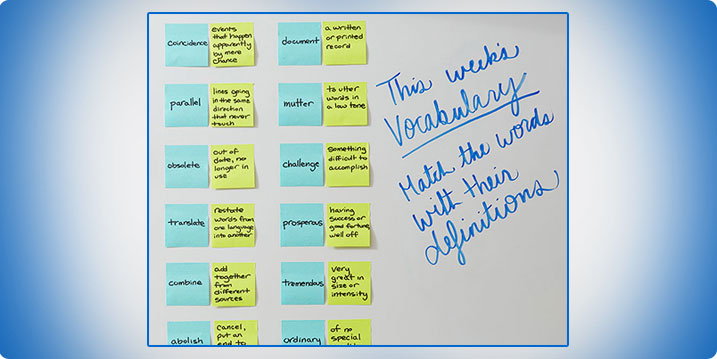 coincidence
events
that happen
apparently
by mere
chance
document
a written
or printed
record
parallel
lines going
in the same
direction
that never
touch
mutter
to utter
words in
a low tone
obsolete
out of
date, no
longer in
use
challenge
Something
difficult to
accomplish
translate
restate
words from
one language
into another
prosperous
having
success or
good fortune,
well off
combine
add
together
from
different
sources
tremendous
very
great in
size or
intensity
abolish
Cancel,
put an
end to
ordinary
of no
special
This week's
Vocabulary
Match the words
with their
definitions